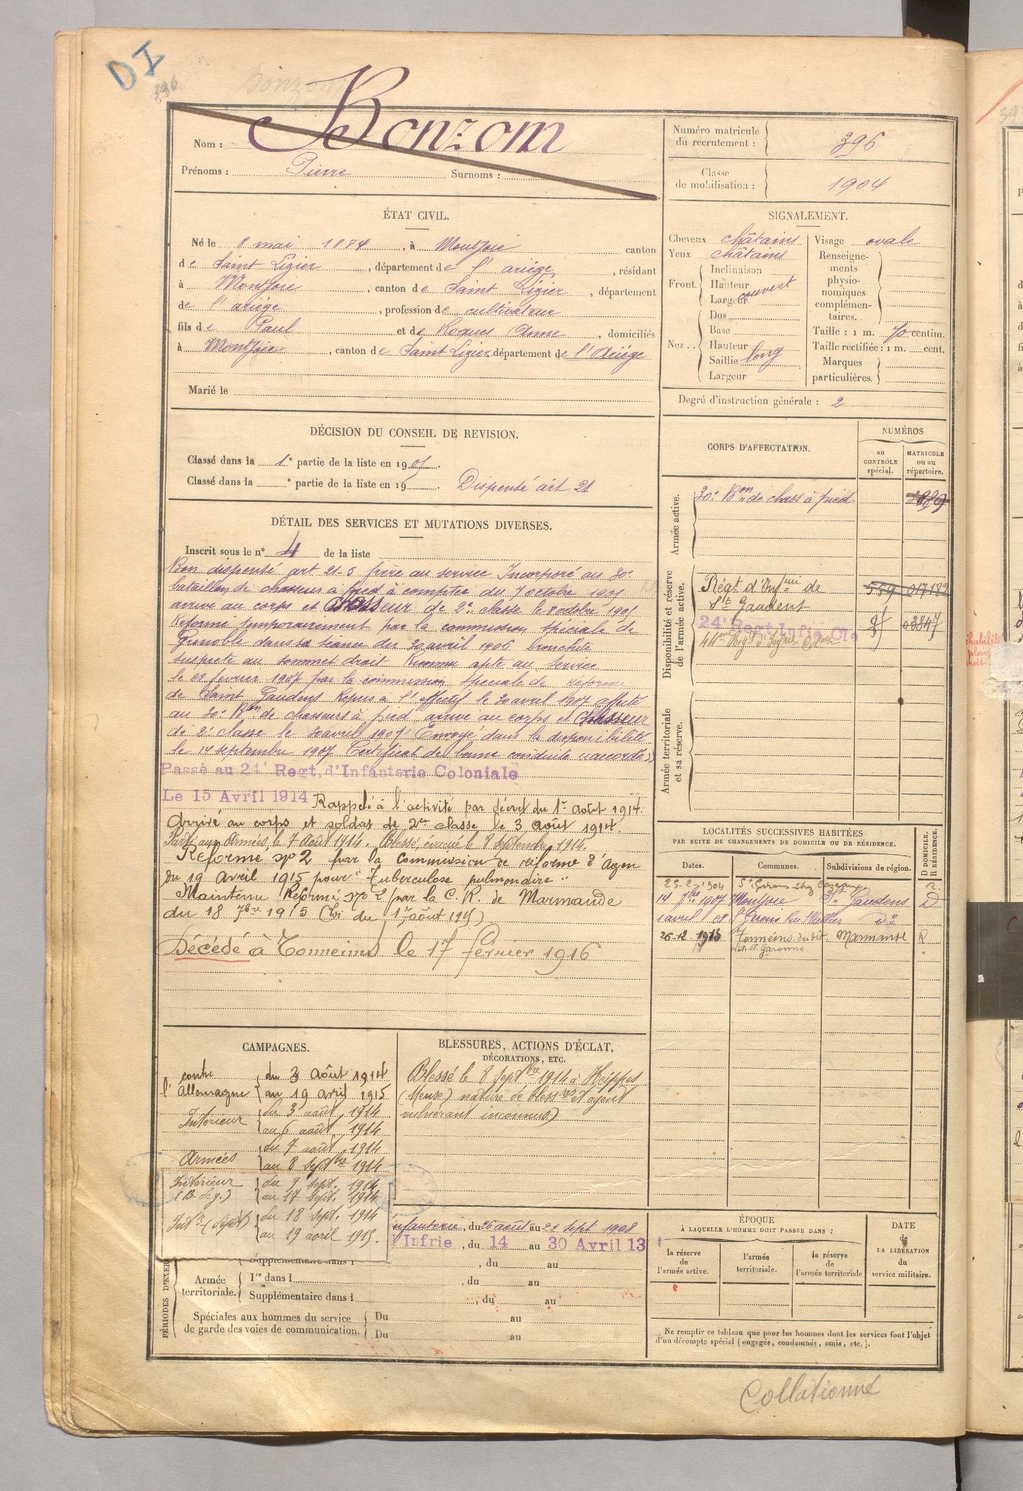 DI
396
Bonzom
Nom : Bonzom
Prénoms : Pierre Surnoms :
Numéro matricule du recrutement : 396
Classe de mobilisation : 1904
ÉTAT CIVIL.
Né le 8 mai 1884, à Montjoie canton
de Saint Lizier, département de l'ariège, résidant
à Montjoie, canton de Saint Lizier, département
de l'ariège, profession de cultivateur
fils de Paul et de Roques Anne, domiciliés
à Montjoie, canton de Saint Lizier département de l'Ariège
Marié le
SIGNALEMENT.
Cheveux châtains
Yeux châtains
Front. Inclinaison
Hauteur
Largeur couvert
Nez.. Dos
Base
Hauteur
Saillie long
Largeur
Visage ovale
Renseignements physionomiques complémentaires.
Taille : 1 m. 70 centim.
Taille rectifiée : 1 m. cent.
Marques particulières.
Degré d'instruction générale : 2
DÉCISION DU CONSEIL DE REVISION.
Classé dans la 1e partie de la liste en 1905.
Classé dans la e partie de la liste en 19 Dispensé art 21
DÉTAIL DES SERVICES ET MUTATIONS DIVERSES.
Inscrit sous le n° 4 de la liste
Bon dispensé art 21.5 frère au service Incorporé au 30e
bataillon de chasseurs à pied à compter du 7 octobre 1905
arrivé au corps et chasseur de 2e classe le 8 octobre 1905
Réformé temporairement par la commission spéciale de
Grenoble dans sa séance du 20 avril 1906 bronchite
suspecte au sommet droit Reconnu apte au service
le 22 février 1907 par la commission spéciale de réforme
de Saint Gaudens Repris à l'effectif le 20 avril 1907 affecté
au 30e Bon de chasseurs à pied, arrivé au corps et chasseur
de 2e classe le 20 avril 1907 Envoyé dans la disponibilité
le 14 septembre 1907 Certificat de bonne conduite "accordé"
Passé au 24e Regt, d'Infanterie Coloniale
Le 15 Avril 1914 Rappelé à l'activité par décret du 1er août 1914.
Arrivé au corps et soldat de 2me classe le 3 août 1914.
Parti aux Armées le 7 août 1914. Blessé, évacué le 8 septembre 1914.
Réformé n° 2 par la Commission de réforme d'Agen
du 19 avril 1915 pour "Tuberculose pulmonaire"
Maintenu Réformé n° 2 par la C. R. de Marmande
du 18 7bre 1915 (Loi du 17 août 1915)
Décédé à Tonneins le 17 février 1916
CORPS D'AFFECTATION.
NUMÉROS
au CONTRÔLE spécial.
MATRICULE ou au répertoire.
Armée active.
30e Bon de chass à pied
Disponibilité et réserve de l'armée active.
Régt d'Infrie de
St Gaudens
559 017182
24e Regt Infie Cle
Armée territoriale et sa réserve.
LOCALITÉS SUCCESSIVES HABITÉES
PAR SUITE DE CHANGEMENTS DE DOMICILE OU DE RÉSIDENCE.
Dates. Communes. Subdivisions de région. D DOMICILE. R RÉSIDENCE.
14 7bre 1907 Montjoie St Gaudens D
1 avril 08 St Girons do
26-12-1915 Tonneins Marmande R
Lot et Garonne
CAMPAGNES.
contre l'Allemagne du 3 août 1914
au 19 avril 1915
Intérieur du 3 août 1914
au 6 août 1914
Armées du 7 août 1914
au 8 Septbre 1914
Intérieur du 9 Sept. 1914
(B. de g.) au 17 Sept. 1914
du 18 Sept. 1914
au 19 avril 1915.
BLESSURES, ACTIONS D'ÉCLAT,
DÉCORATIONS, ETC.
Blessé le 8 Septbre 1914 à Heippes
(Meuse) nature de blessres et agent
vulnérant inconnus)
infanterie, du 26 août au 21 sept 1908
Infrie, du 14 au 30 Avril 13
PÉRIODES D'EXER
Supplémentaire dans l , du au
Armée territoriale. 1re dans l , du au
Supplémentaire dans l , du au
Spéciales aux hommes du service
de garde des voies de communication. Du au
Du au
ÉPOQUE
À LAQUELLE L'HOMME DOIT PASSER DANS :
la réserve de l'armée active.
l'armée territoriale.
la réserve de l'armée territoriale
DATE
de
LA LIBÉRATION
du
service militaire.
Ne remplir ce tableau que pour les hommes dont les services font l'objet
d'un décompte spécial (engagés, condamnés, omis, etc.).
Collationné